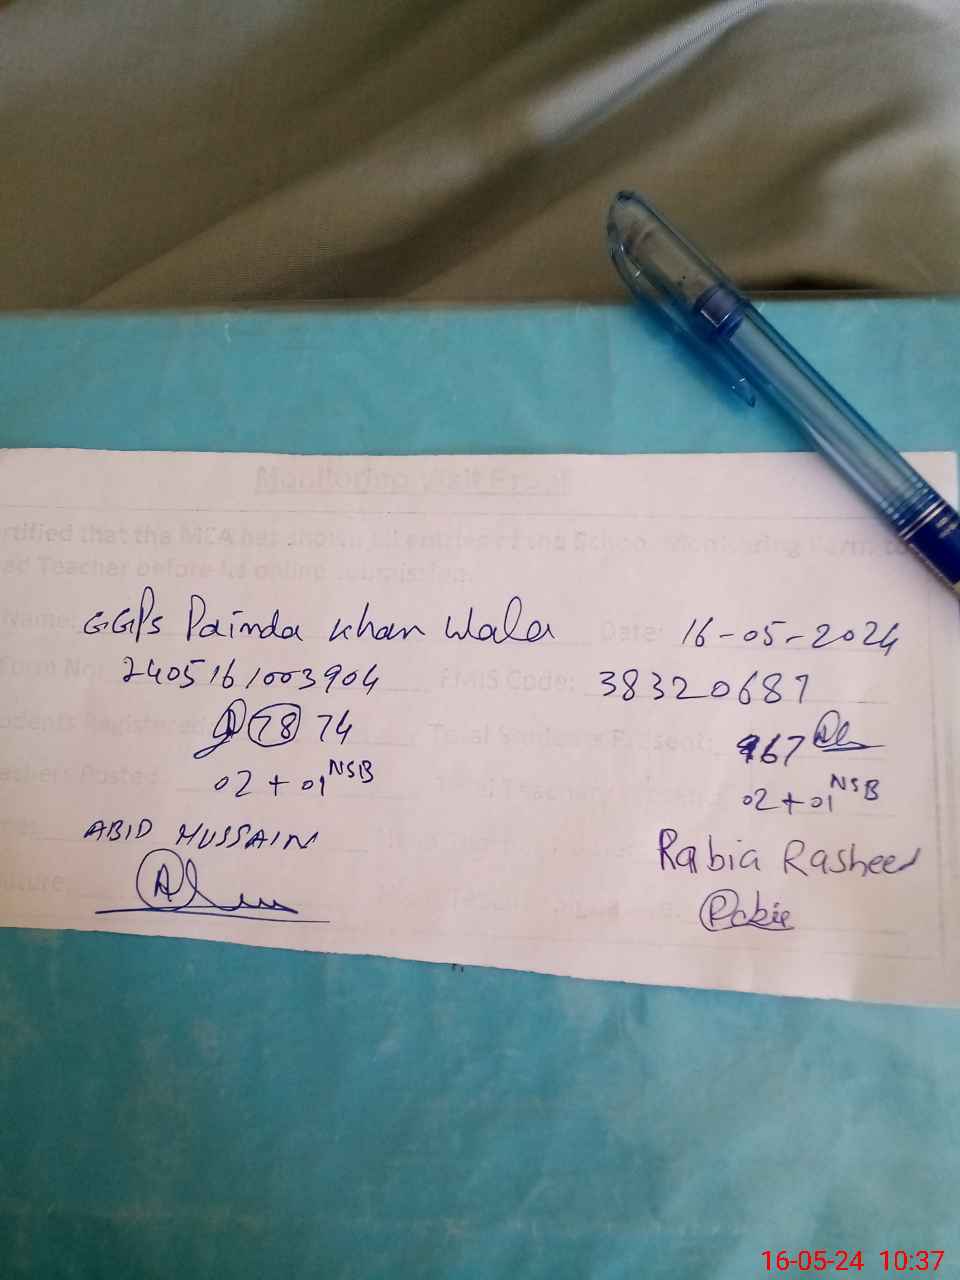 Monitoring Visit Proof
rtified that the MEA has shown all entries of the School Monitoring Form to
ad Teacher before its online submission.
Name: GGPS Painda Khan Wala Date: 16-05-2024
Form No: 2405161003904 EMIS Code: 38320687
udents Registered 78 74 Total Students Present: 67
achers Posted 02 + 01 NSB Total Teachers 02 + 01 NSB
ABID HUSSAIN Rabia Rasheed
ature Rabia
16-05-24 10:37